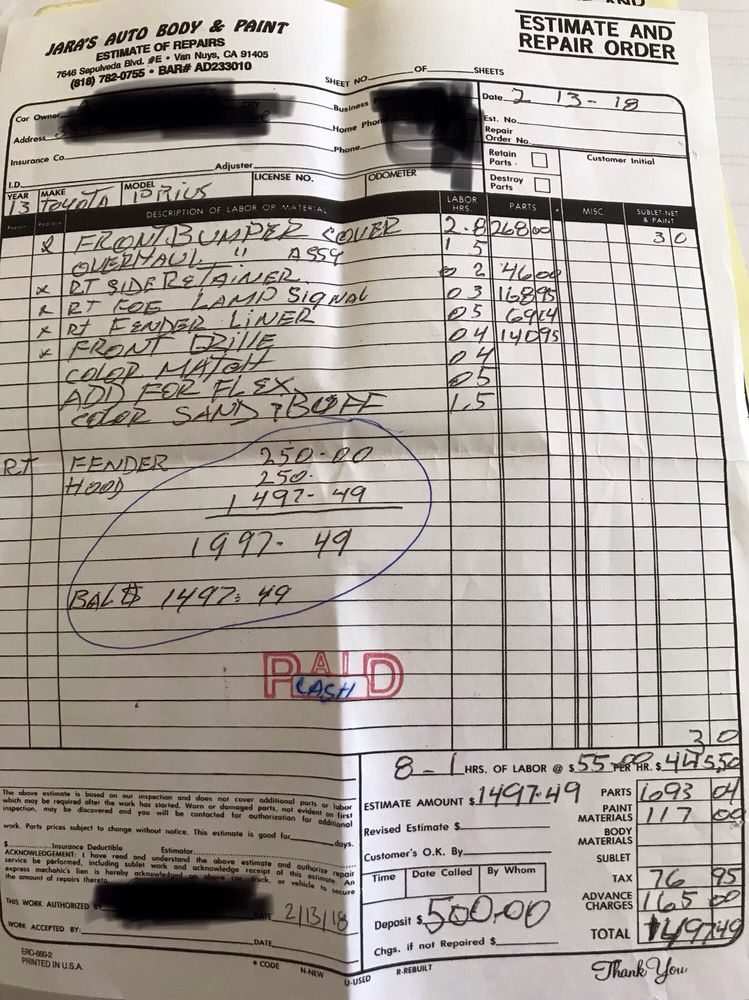 JARA'S AUTO BODY & PAINT
ESTIMATE OF REPAIRS
7646 Sepulveda Blvd. #E • Van Nuys, CA 91405
(818) 782-0755 • BAR# AD233010
ESTIMATE AND
REPAIR ORDER
SHEET NO. OF SHEETS
Car Owner
City
Business
Date 2 13-18
Address
Home Phone
Est. No.
Repair
Order No.
Insurance Co.
Phone
Adjuster
Retain
Parts
Customer Initial
I.D.
LICENSE NO.
ODOMETER
Destroy
Parts
YEAR 13 MAKE TOYOTA MODEL PRIUS
Repair Replace DESCRIPTION OF LABOR OR MATERIAL LABOR HRS. PARTS * MISC. SUBLET-NET & PAINT
x FRONT BUMPER COVER 2.8 268 00 3 0
OVERHAUL " ASSY 1 5
x RT SIDE RETAINER 0 2 46 00
x RT FOG LAMP SIGNAL 0 3 168 95
x RT FENDER LINER 0 5 69 14
x FRONT GRILLE 0 4 140 95
COLOR MATCH 0 4
ADD FOR FLEX 0 5
COLOR SAND & BUFF 1.5
RT FENDER 250.00
HOOD 250.
1497-49
1997-49
BAL $ 1497.49
PAID
CASH
3 0
8-1 HRS. OF LABOR @ $55.00 PER HR. $ 445,50
The above estimate is based on our inspection and does not cover additional parts or labor
which may be required after the work has started. Worn or damaged parts, not evident on first
inspection, may be discovered and you will be contacted for authorization for additional
work. Parts prices subject to change without notice. This estimate is good for days.
$ Insurance Deductible Estimator
ACKNOWLEDGEMENT: I have read and understand the above estimate and authorize repair
service be performed, including sublet work and acknowledge receipt of this estimate. An
express mechanic's lien is hereby acknowledged on above car, truck, or vehicle to secure
the amount of repairs thereto.
THIS WORK AUTHORIZED BY DATE 2/13/18
WORK ACCEPTED BY: DATE
ESTIMATE AMOUNT $ 1497.49
Revised Estimate $
Customer's O.K. By
Time Date Called By Whom
Deposit $ 500.00
Chgs. if not Repaired $
PARTS 693 04
PAINT MATERIALS 117 00
BODY MATERIALS
SUBLET
TAX 76 95
ADVANCE CHARGES 165 00
TOTAL $1497 49
ERO-660-2
PRINTED IN U.S.A.
* CODE N-NEW U-USED R-REBUILT
Thank You